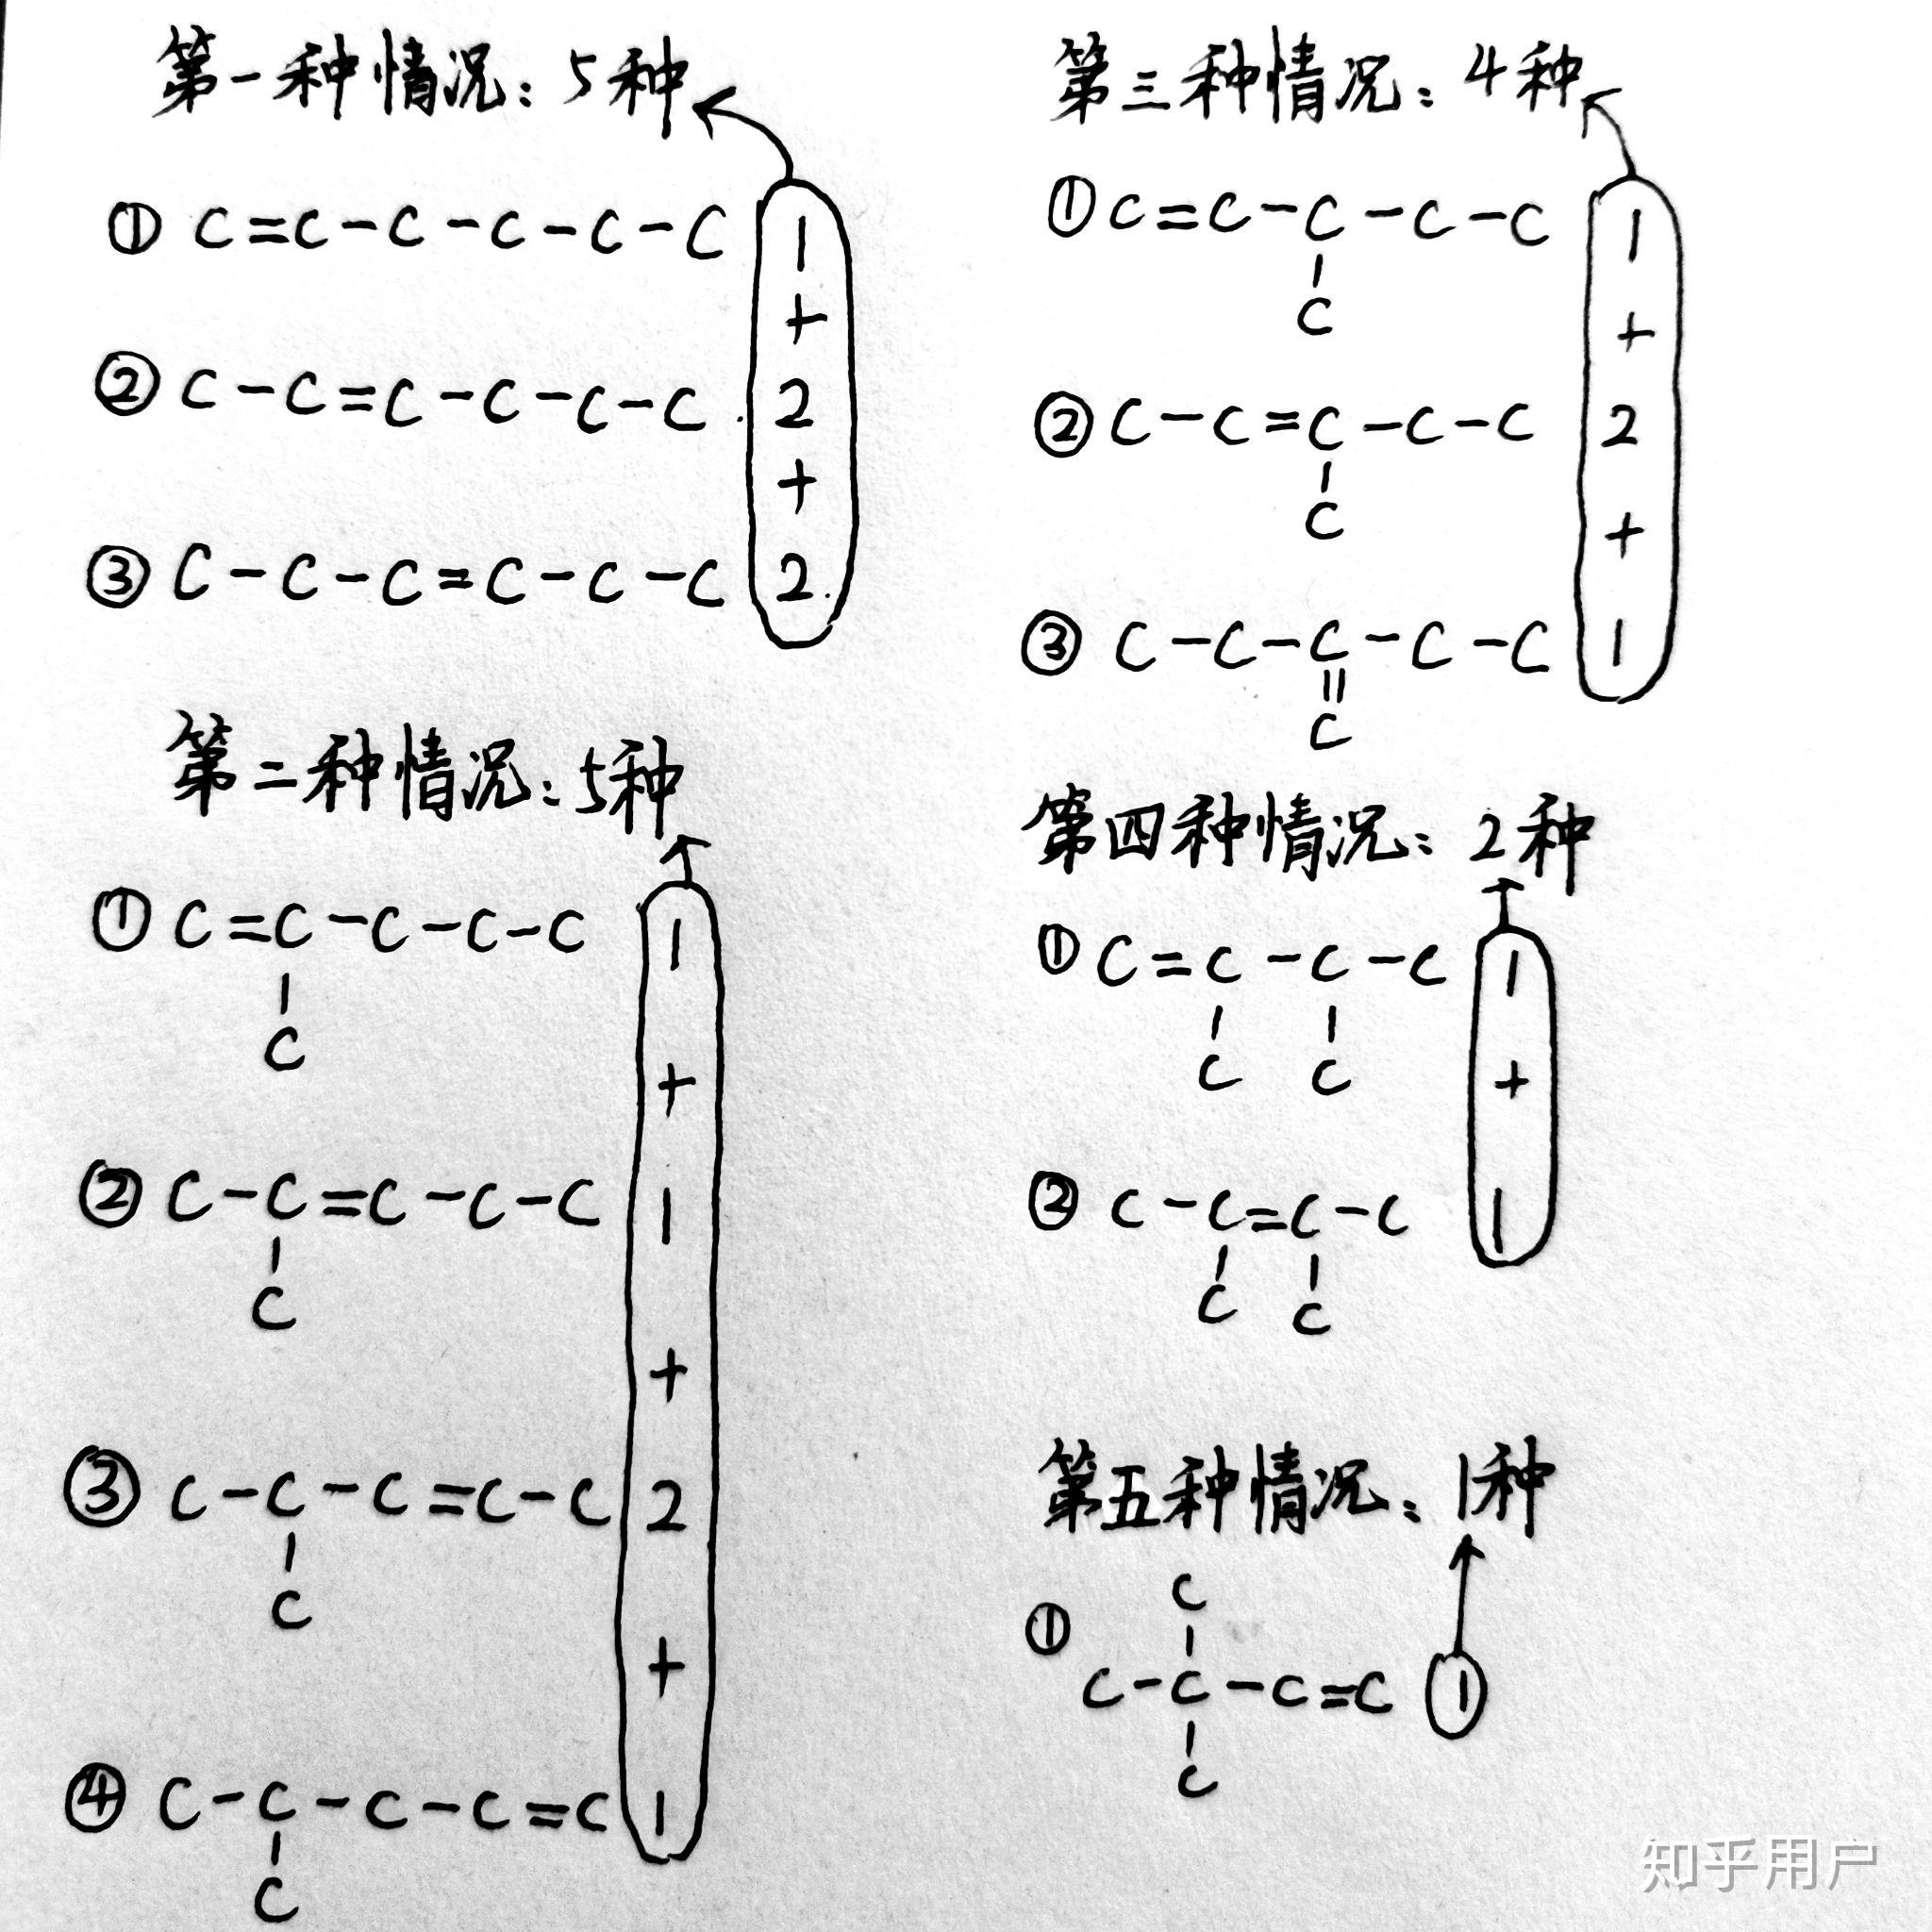 第一种情况：5种
① C=C-C-C-C-C 1
+
② C-C=C-C-C-C 2
+
③ C-C-C=C-C-C 2
第二种情况：5种
① C=C-C-C-C 1
C
+
② C-C=C-C-C 1
C
+
③ C-C-C=C-C 2
C
+
④ C-C-C-C=C 1
C
第三种情况：4种
① C=C-C-C-C 1
C
+
② C-C=C-C-C 2
C
+
③ C-C-C-C-C 1
C
第四种情况：2种
① C=C-C-C 1
C C
+
② C-C=C-C 1
C C
第五种情况：1种
C
① C-C-C=C 1
C
知乎用户